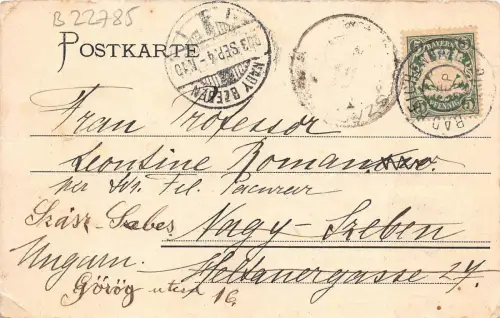 B 22785
POSTKARTE
903 SEP. 4
NAGY SZEBEN
BAYERN
5 5
PFENNIG
BAD
Frau Professor
Leontine Roman
per Adr. Fil. Pacurar
Szász-Sebes Nagy-Szeben
Ungarn. Heltauergasse 27.
Görög utcza 16